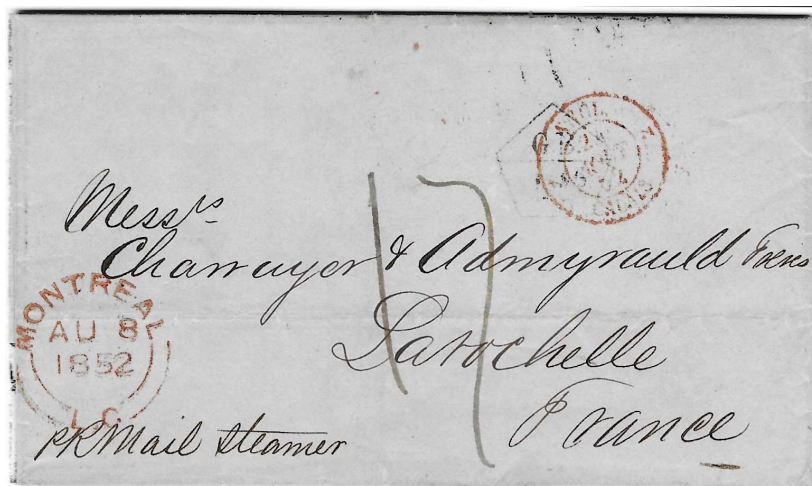 ANGL.
CALAIS
Messrs
Charruyer & Admyrauld Freres
Larochelle
France
17
MONTREAL
AU 8
1852
L.C
pr Mail Steamer